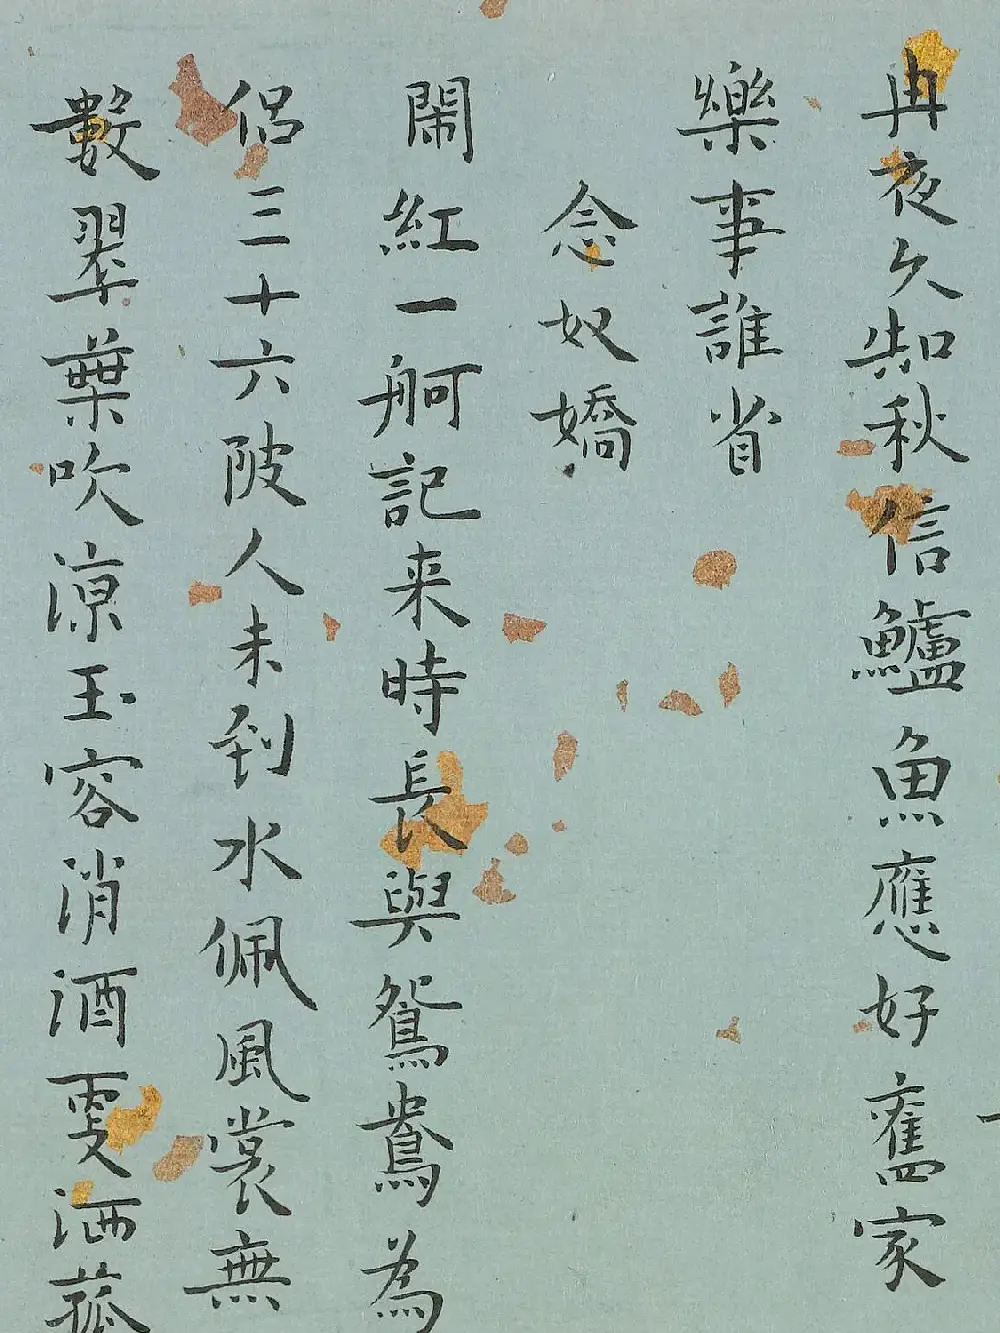 冉夜久知秋信鱸魚應好舊家
樂事誰省
念奴嬌
鬧紅一舸記来時長與鴛鴦為
侶三十六陂人未到水佩風裳無
數翠葉吹涼玉容消酒更洒菰